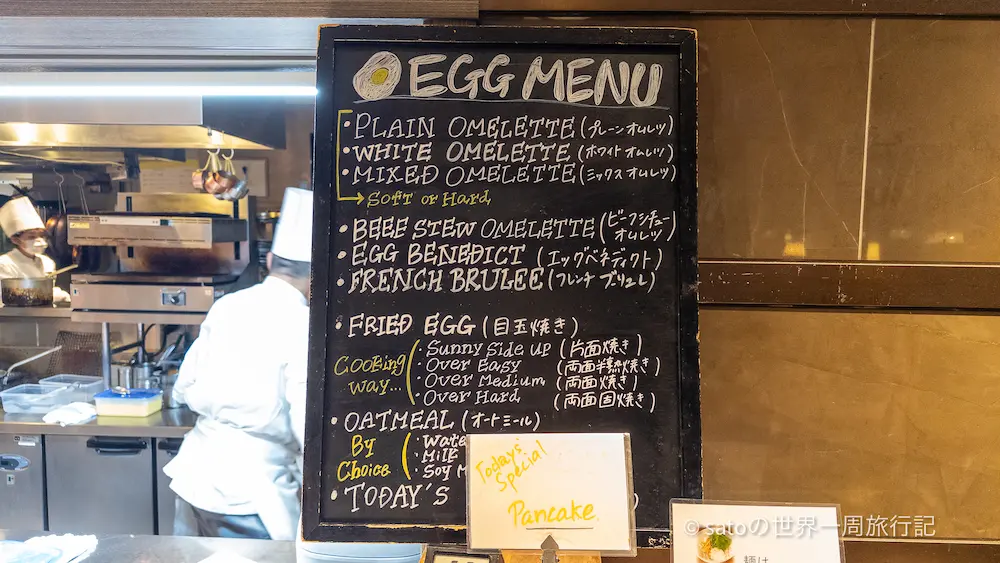 EGG MENU
・PLAIN OMELETTE (プレーンオムレツ)
・WHITE OMELETTE (ホワイトオムレツ)
・MIXED OMELETTE (ミックスオムレツ)
Soft or Hard
・BEEF STEW OMELETTE (ビーフシチューオムレツ)
・EGG BENEDICT (エッグベネディクト)
・FRENCH BRULEE (フレンチブリュレ)
・FRIED EGG (目玉焼き)
Cooking way...
・Sunny Side up (片面焼き)
・Over Easy (両面半熟焼き)
・Over Medium (両面焼き)
・Over Hard (両面固焼き)
・OATMEAL (オートミール)
By Choice
・Wate
・Milk
・Soy M
・TODAY'S
Todays Special
Pancake
© satoの世界一周旅行記
麺は